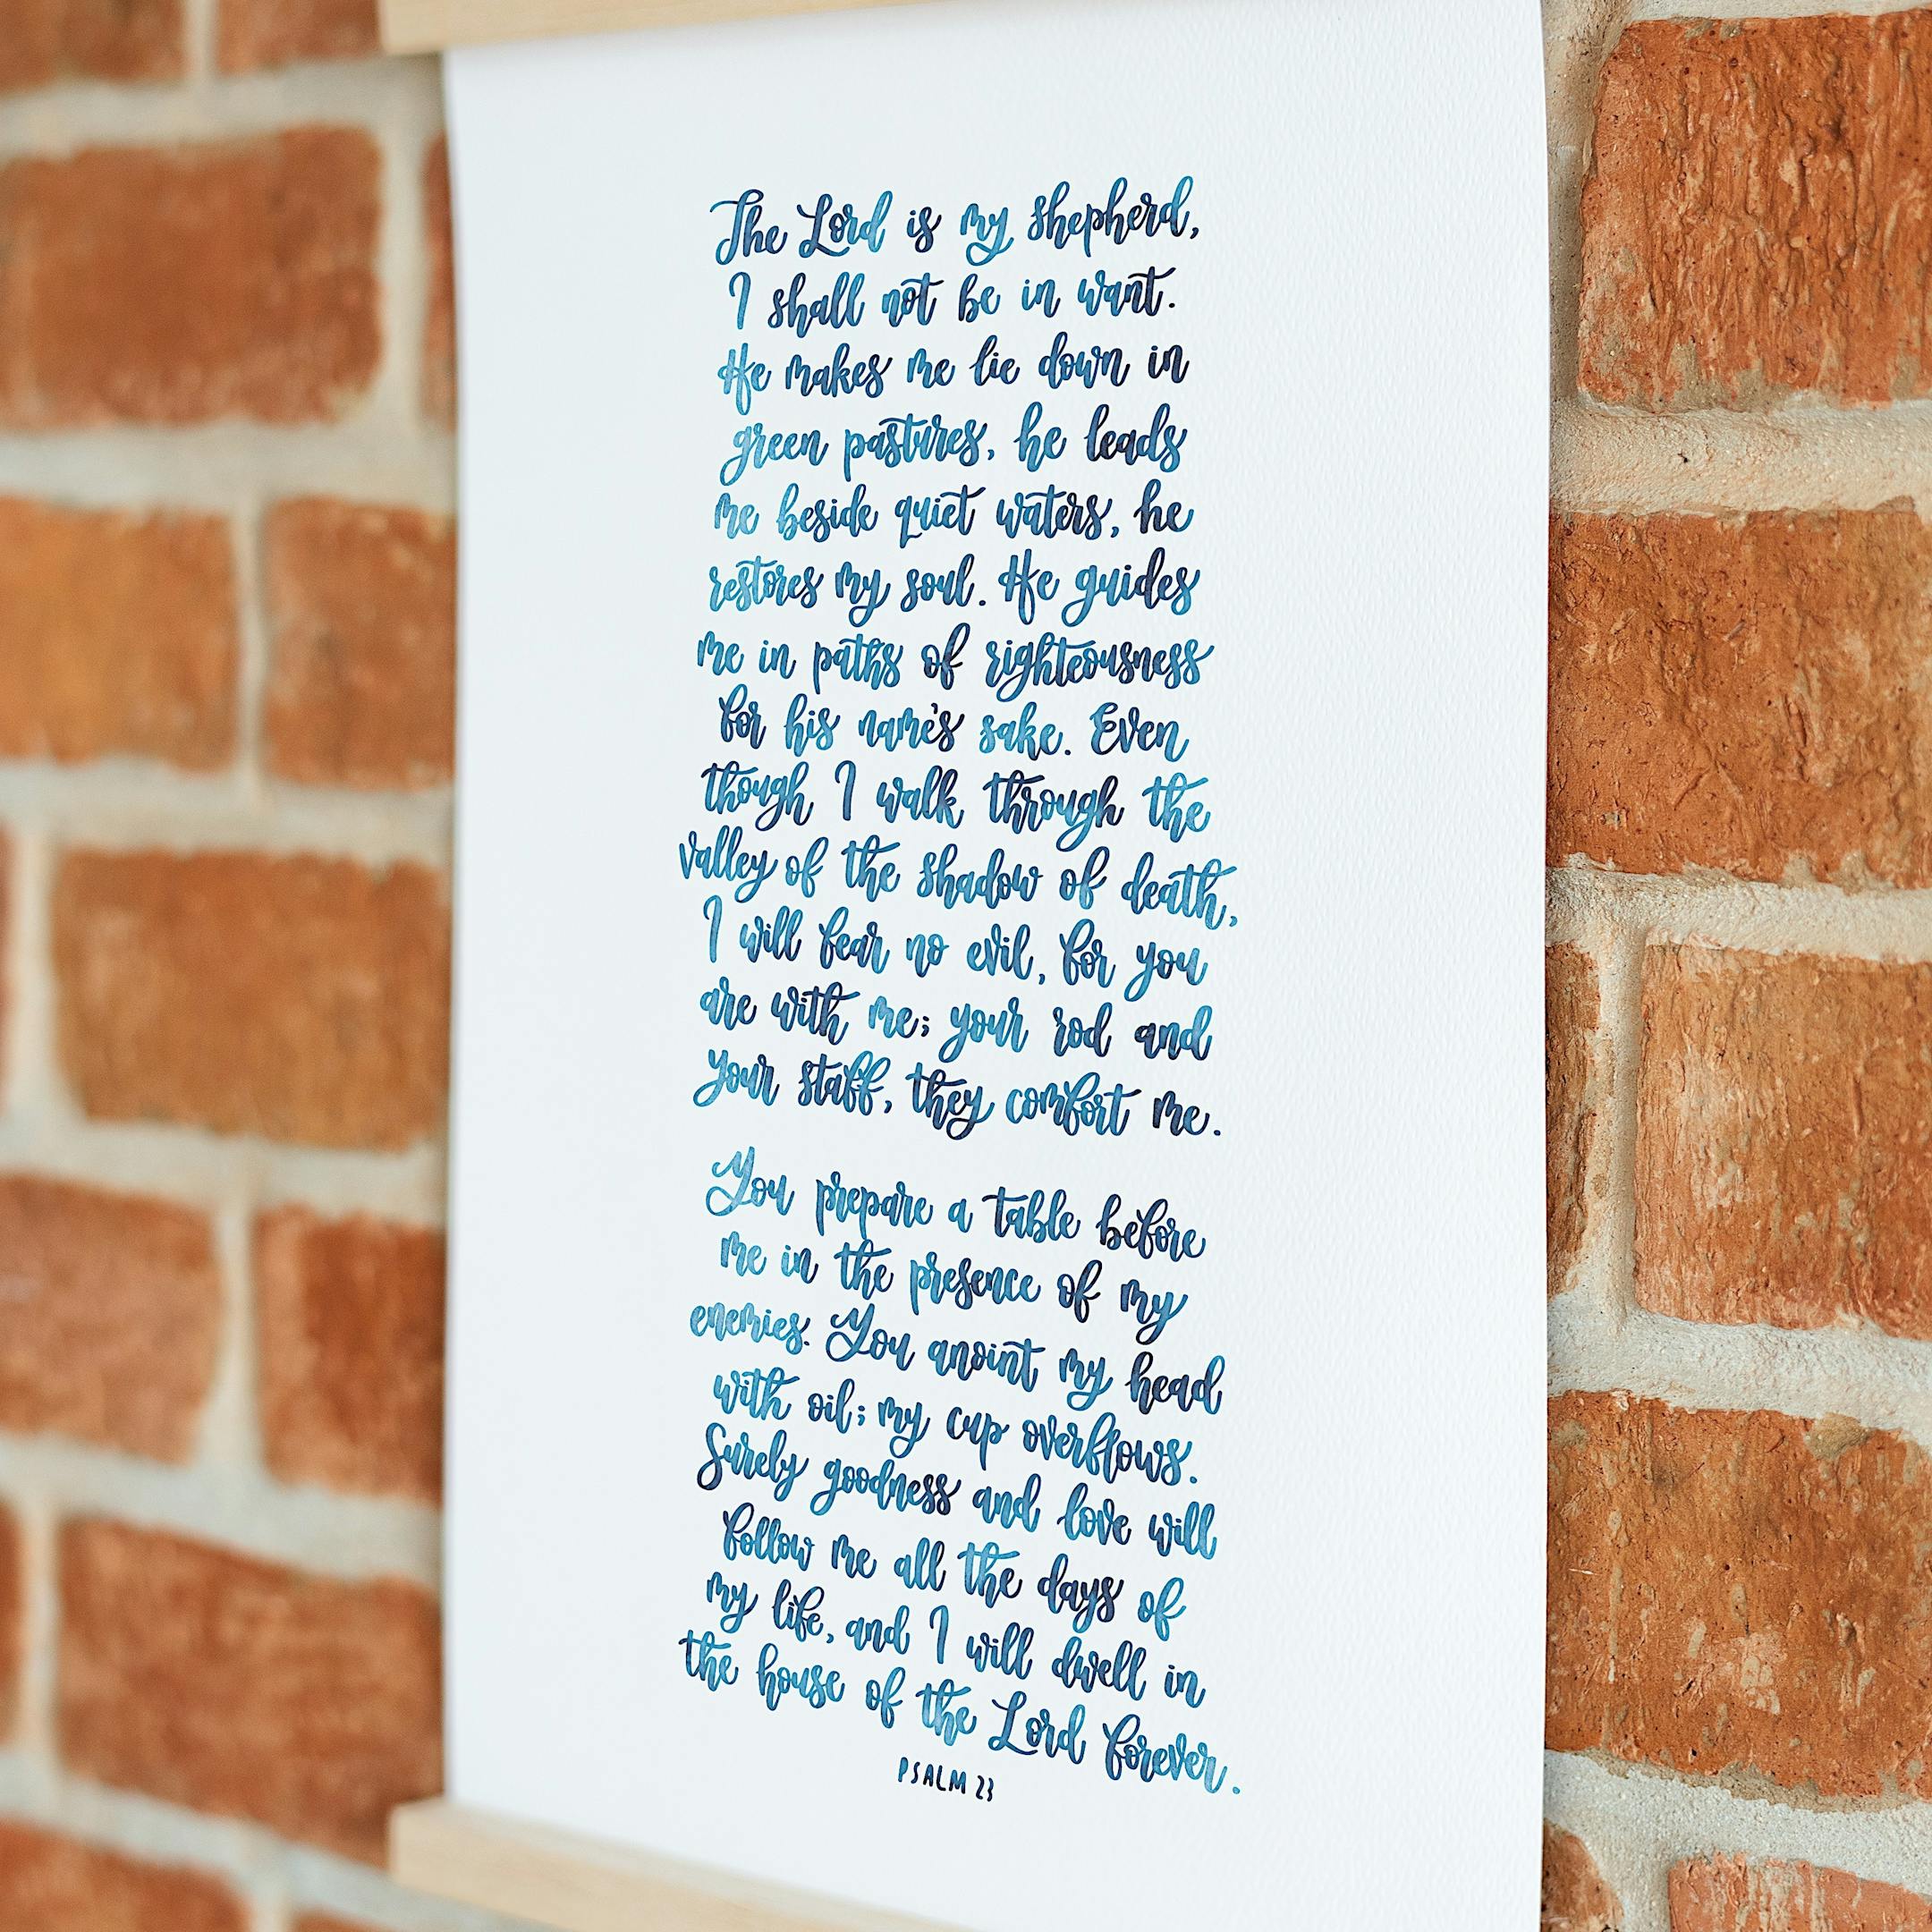 The Lord is my shepherd,
I shall not be in want.
He makes me lie down in
green pastures, he leads
me beside quiet waters, he
restores my soul. He guides
me in paths of righteousness
for his name's sake. Even
though I walk through the
valley of the shadow of death,
I will fear no evil, for you
are with me; your rod and
your staff, they comfort me.
You prepare a table before
me in the presence of my
enemies. You anoint my head
with oil; my cup overflows.
Surely goodness and love will
follow me all the days of
my life, and I will dwell in
the house of the Lord forever.
PSALM 23